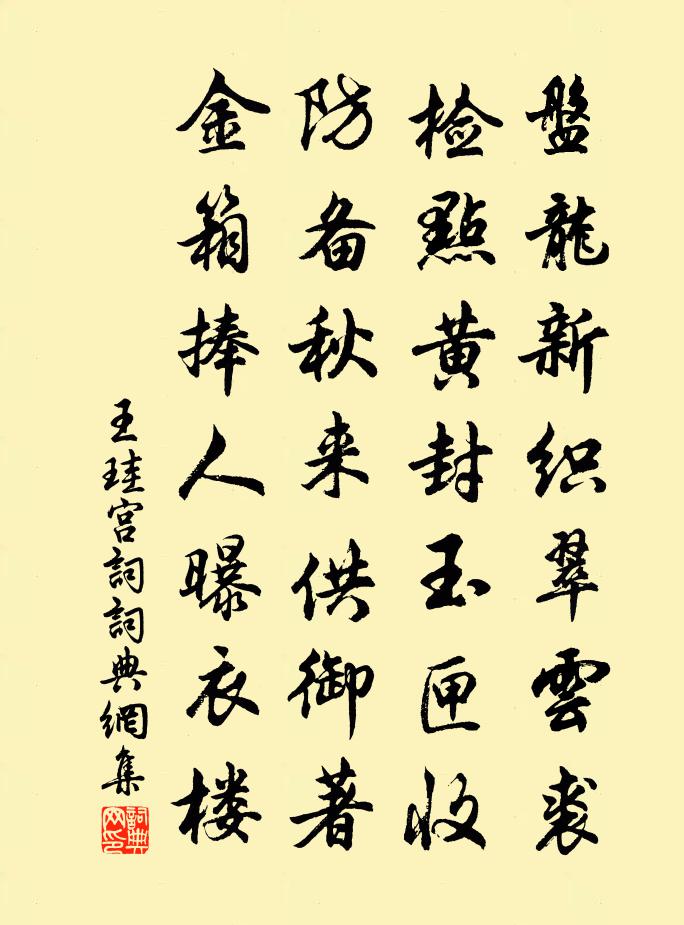 盤龍新织翠雲裘
检點黄封玉匣收
防备秋来供御著
金箱捧人曝衣楼
王珪宫詞詞典網集
詞典网印